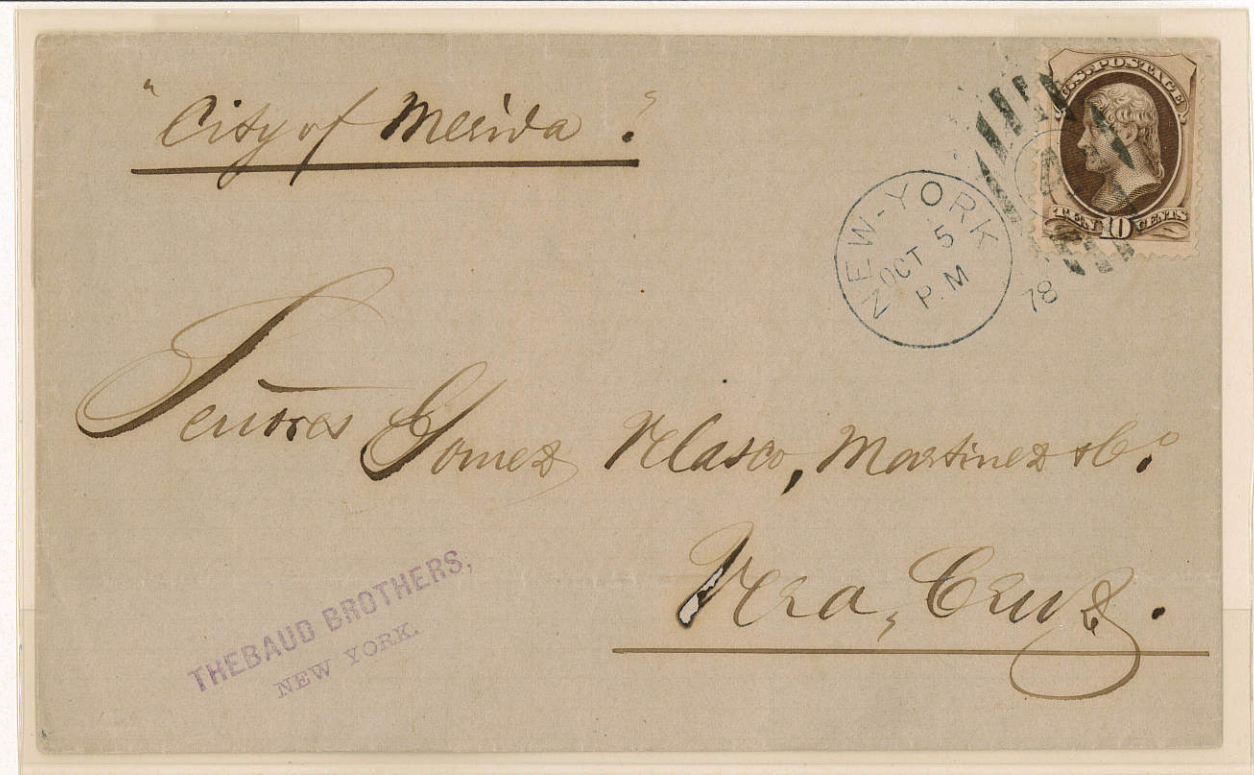 "City of Merida".
U.S. POSTAGE
TEN 10 CENTS
NEW-YORK
OCT 5
P.M
78
4
Señores Gomez Velasco, Martinez & Co.
Vera, Cruz.
THEBAUD BROTHERS,
NEW YORK.